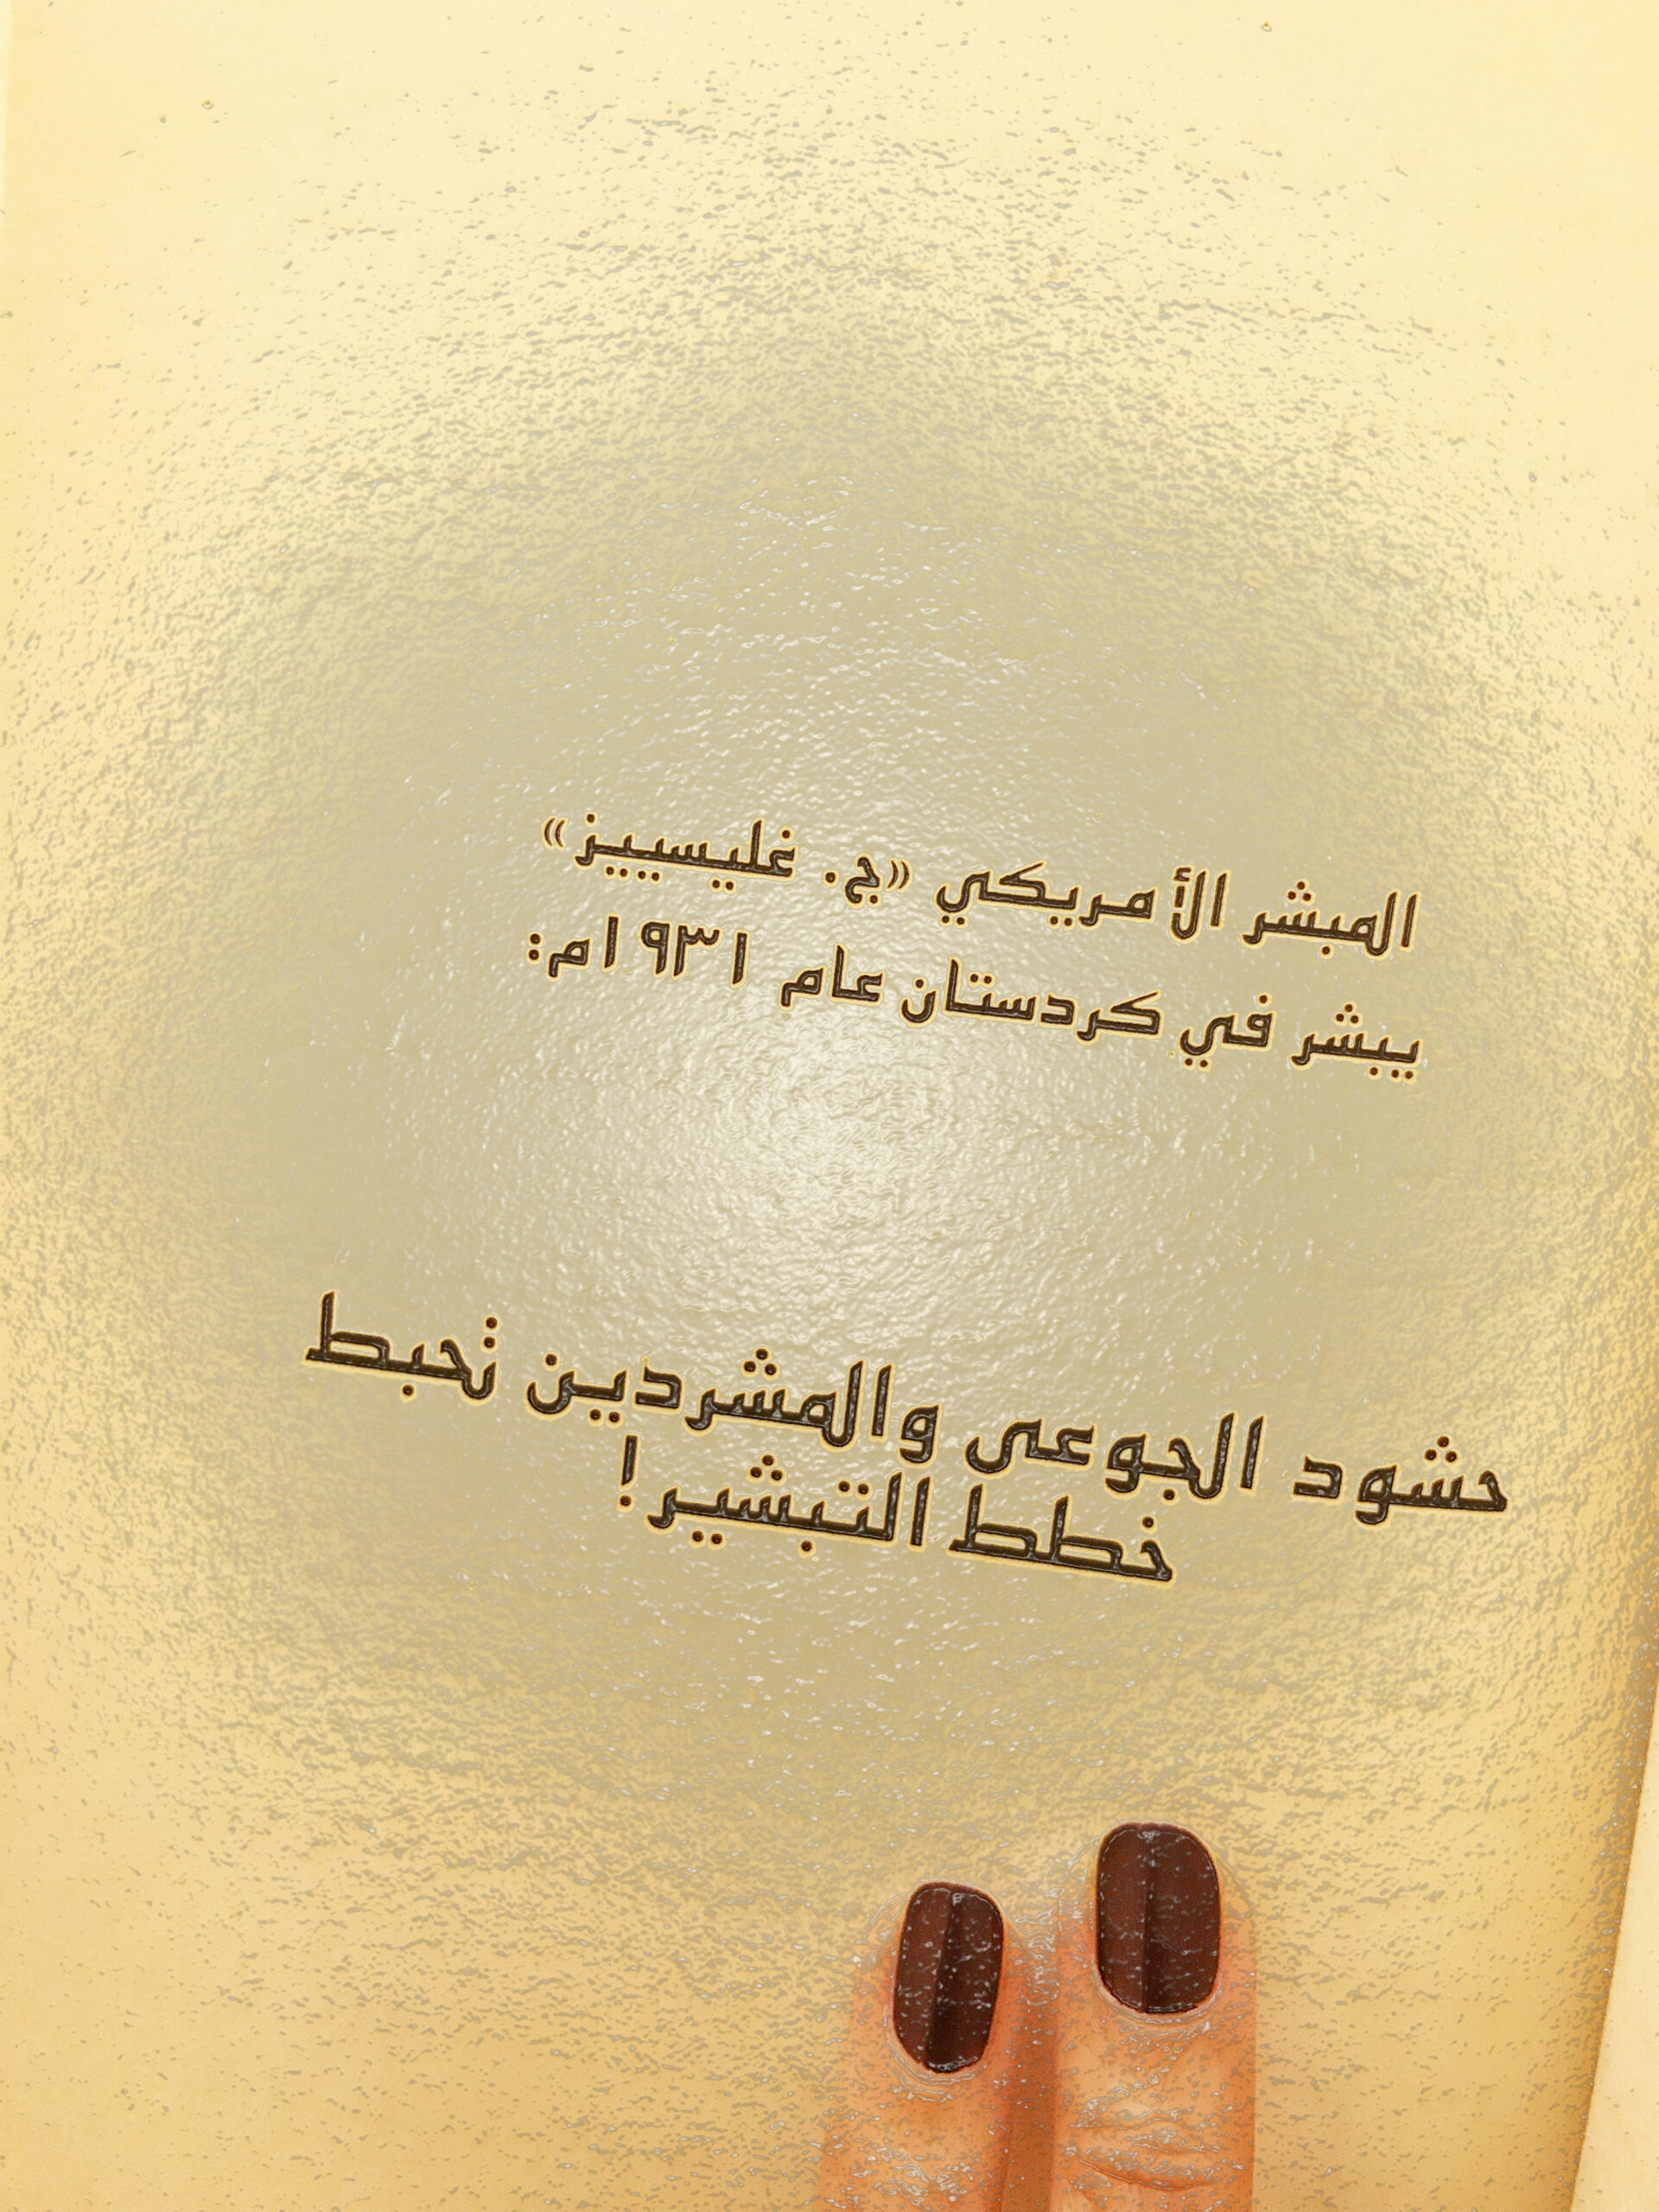 المبشر الأمريكي «ج. غليسييز»
يبشر في كردستان عام ١٩٣١م:
حشود الجوعى والمشردين تحبط
خطط التبشير!